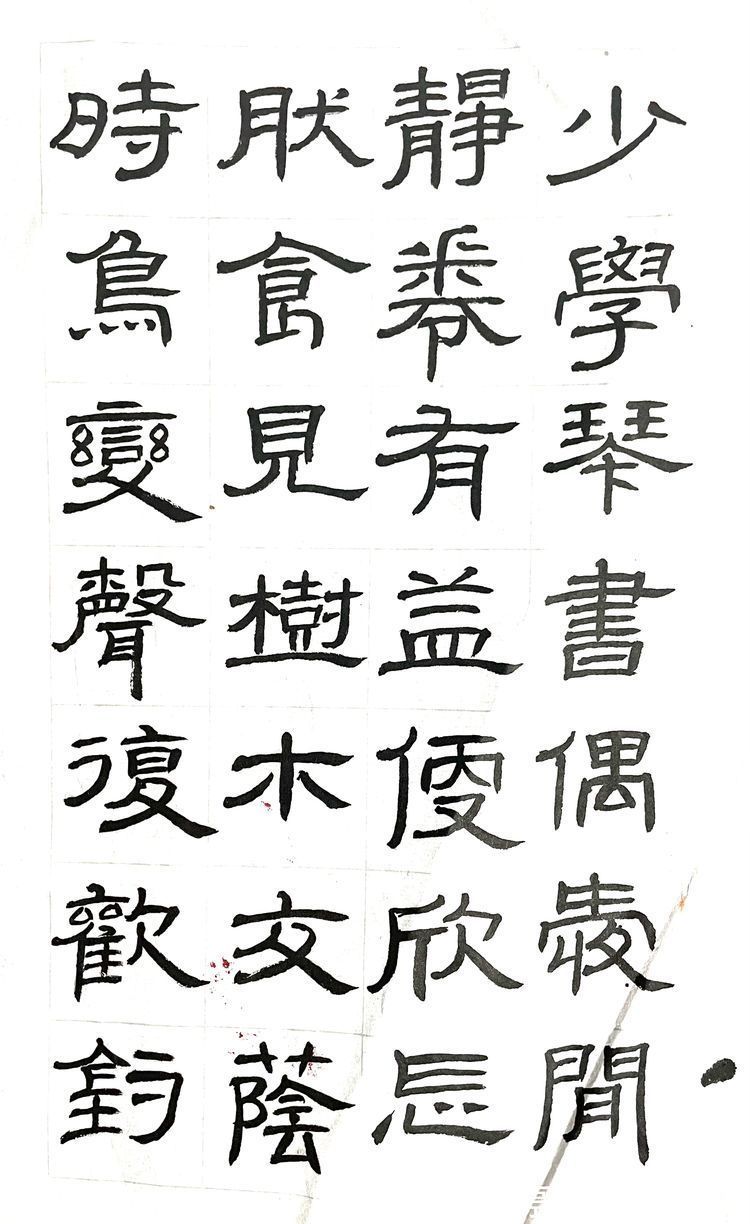 少學琴書偶愛閒
靜卷有益便欣忘
肰食見樹木交蔭
時鳥變聲復歡鈞